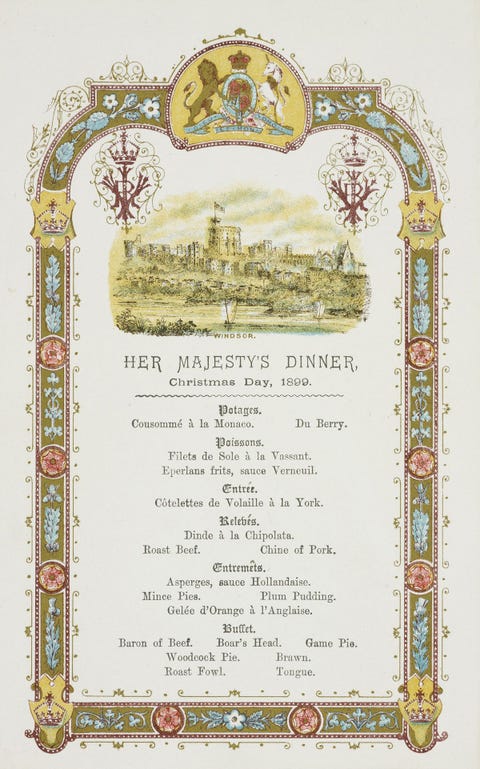 WINDSOR.
HER MAJESTY'S DINNER,
Christmas Day, 1899.
Potages.
Cousommé à la Monaco. Du Berry.
Poissons.
Filets de Sole à la Vassant.
Eperlans frits, sauce Verneuil.
Entrée.
Côtelettes de Volaille à la York.
Relevés.
Dinde à la Chipolata.
Roast Beef. Chine of Pork.
Entremêts.
Asperges, sauce Hollandaise.
Mince Pies. Plum Pudding.
Gelée d'Orange à l'Anglaise.
Buffet.
Baron of Beef. Boar's Head. Game Pie.
Woodcock Pie. Brawn.
Roast Fowl. Tongue.